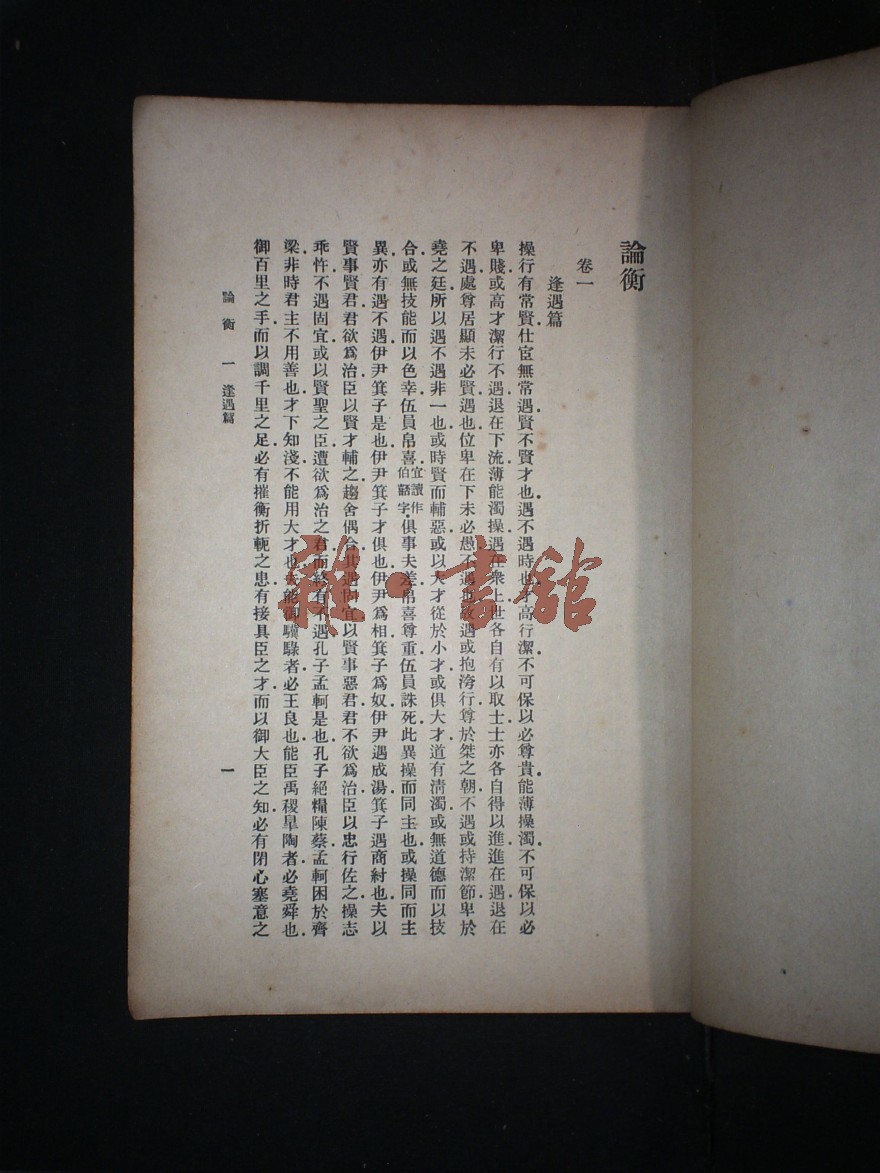 論衡
卷一
逢遇篇
操行有常賢仕宦無常遇賢不賢才也遇不遇時也才高行潔不可保以必尊貴能薄操濁不可保以必
卑賤或高才潔行不遇退在下流薄能濁操遇在衆上世各自有以取士士亦各自得以進進在遇退在
不遇處尊居顯未必賢遇也位卑在下未必愚不遇也故遇或抱洿行尊於桀之朝不遇或持潔節卑於
堯之廷所以遇不遇非一也或時賢而輔惡或以大才從於小才或俱大才道有清濁或無道德而以技
合或無技能而以色幸伍員帛喜宜讀作伯嚭字俱事夫差帛喜尊重伍員誅死此異操而同主也或操同而主
異亦有遇不遇伊尹箕子是也伊尹箕子才俱也伊尹爲相箕子爲奴伊尹遇成湯箕子遇商紂也夫以
賢事賢君君欲爲治臣以賢才輔之趨舍偶合其遇固宜以賢事惡君君不欲爲治臣以忠行佐之操志
乖忤不遇固宜或以賢聖之臣遭欲爲治之君而終有不遇孔子孟軻是也孔子絕糧陳蔡孟軻困於齊
梁非時君主不用善也才下知淺不能用大才也夫能御驥騄者必王良也能臣禹稷臯陶者必堯舜也
御百里之手而以調千里之足必有摧衡折軛之患有接具臣之才而以御大臣之知必有閉心塞意之
論衡 一 逢遇篇
一
雜·書館